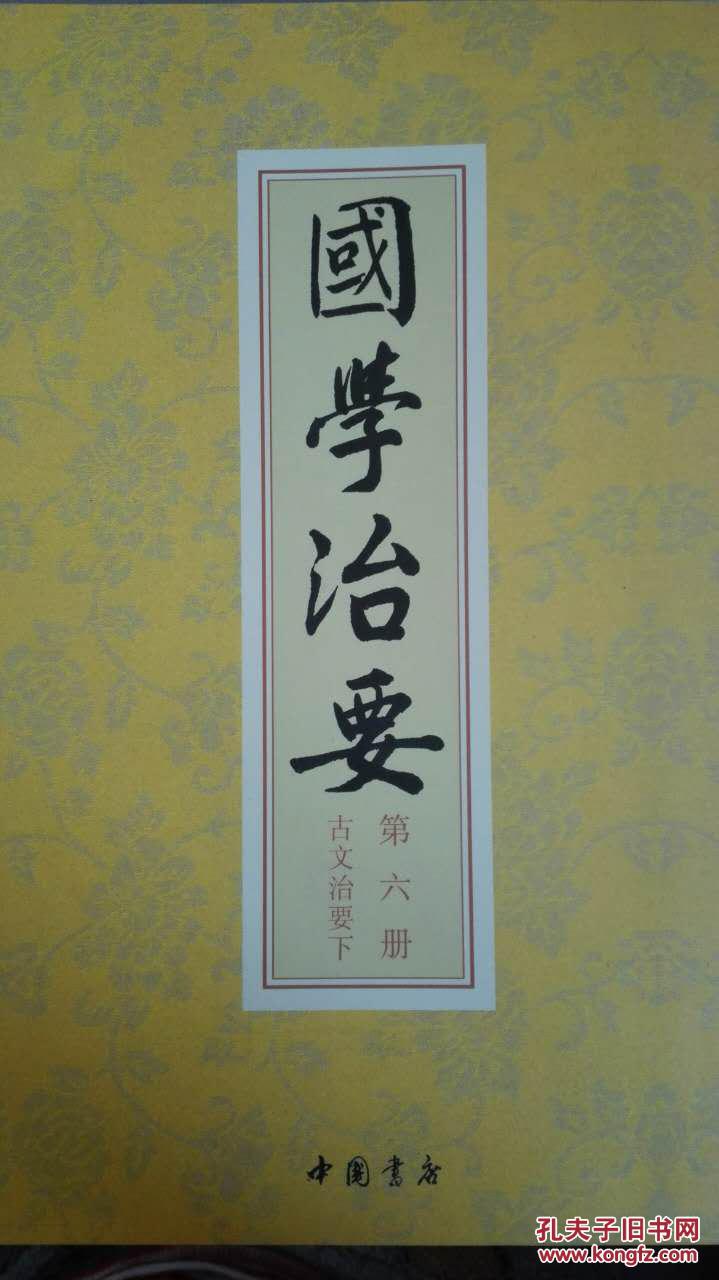 國學治要
第六册
古文治要下
中国書店
孔夫子旧书网
www.kongfz.com